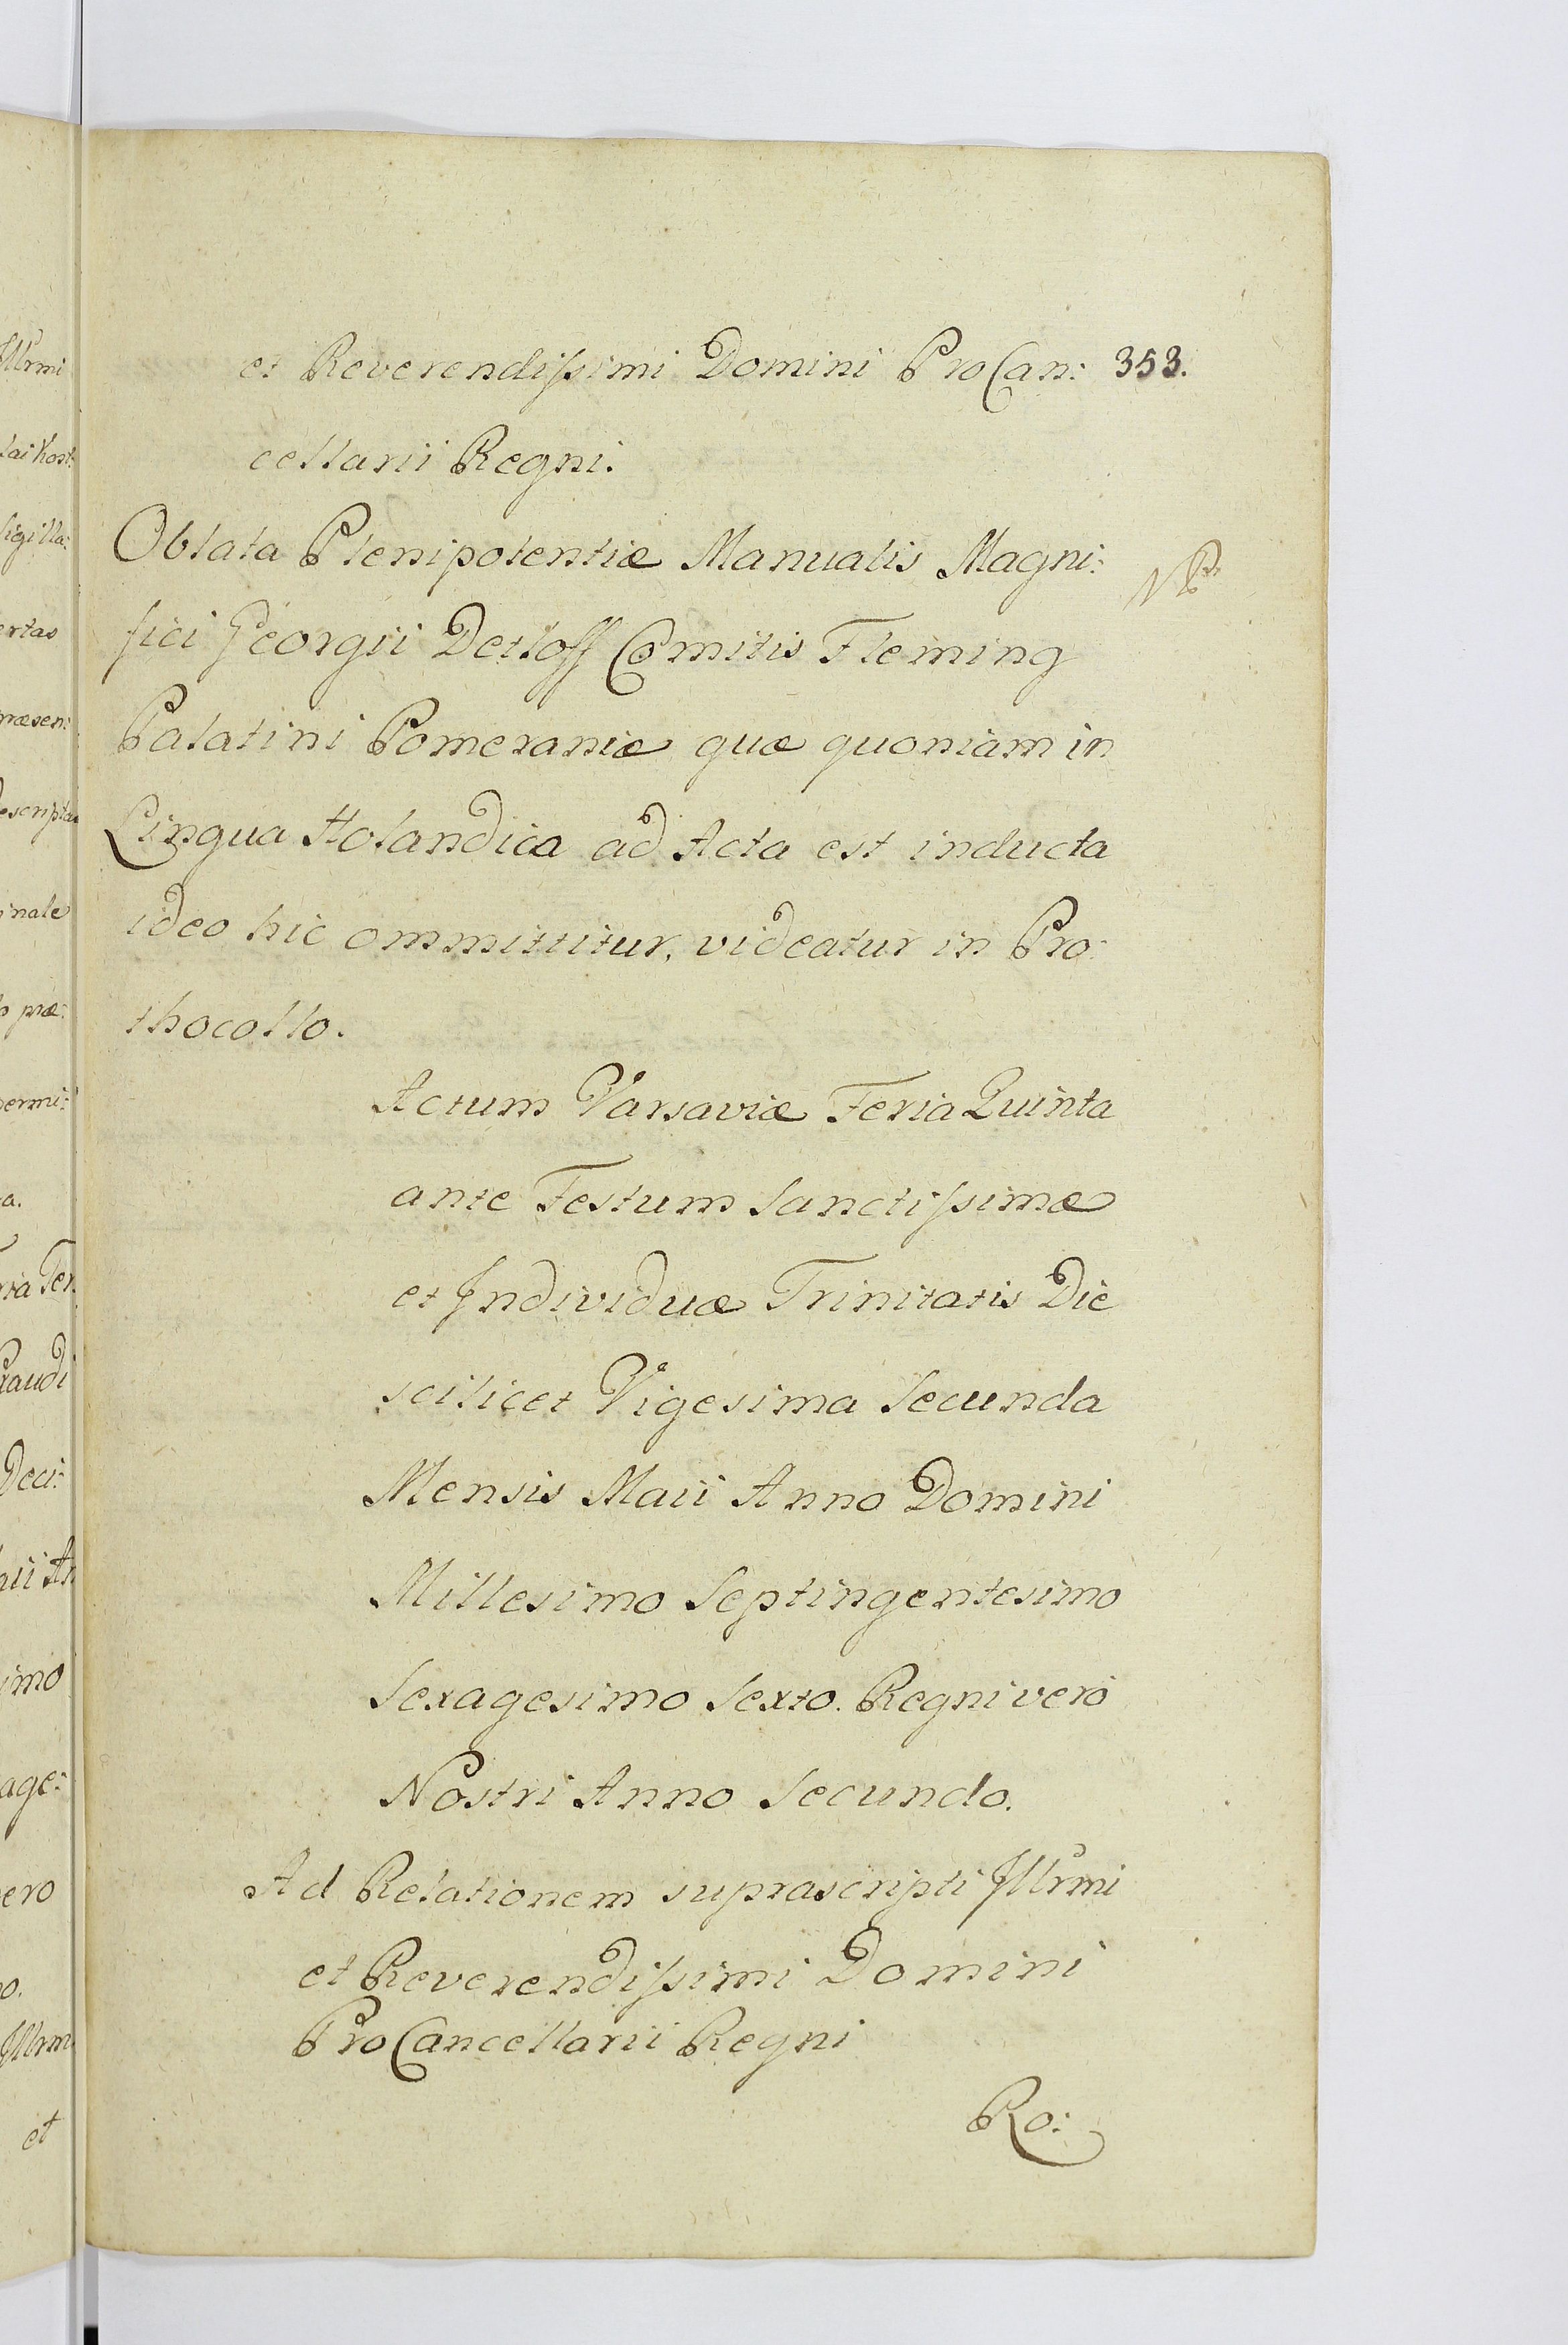 et Reverendissimi Domini ProCan: 353.
cellarii Regni.
Oblata Plenipotentiæ Manualis Magni: NB
fici Georgii Detloff Comitis Fleming
Palatini Pomeraniæ quæ quoniam in
Lingua Holandica ad Acta est inducta
ideo hic ommittitur, videatur in Pro:
thocollo.
Actum Varsaviæ Feria Quinta
ante Festum Sanctissimæ
et Individuæ Trinitatis Die
scilicet Vigesima Secunda
Mensis Maii Anno Domini
Millesimo Septingentesimo
Sexagesimo Sexto. Regni vero
Nostri Anno Secundo.
Ad Relationem suprascripti Illrmi
et Reverendissimi Domini
ProCancellarii Regni
Ro: